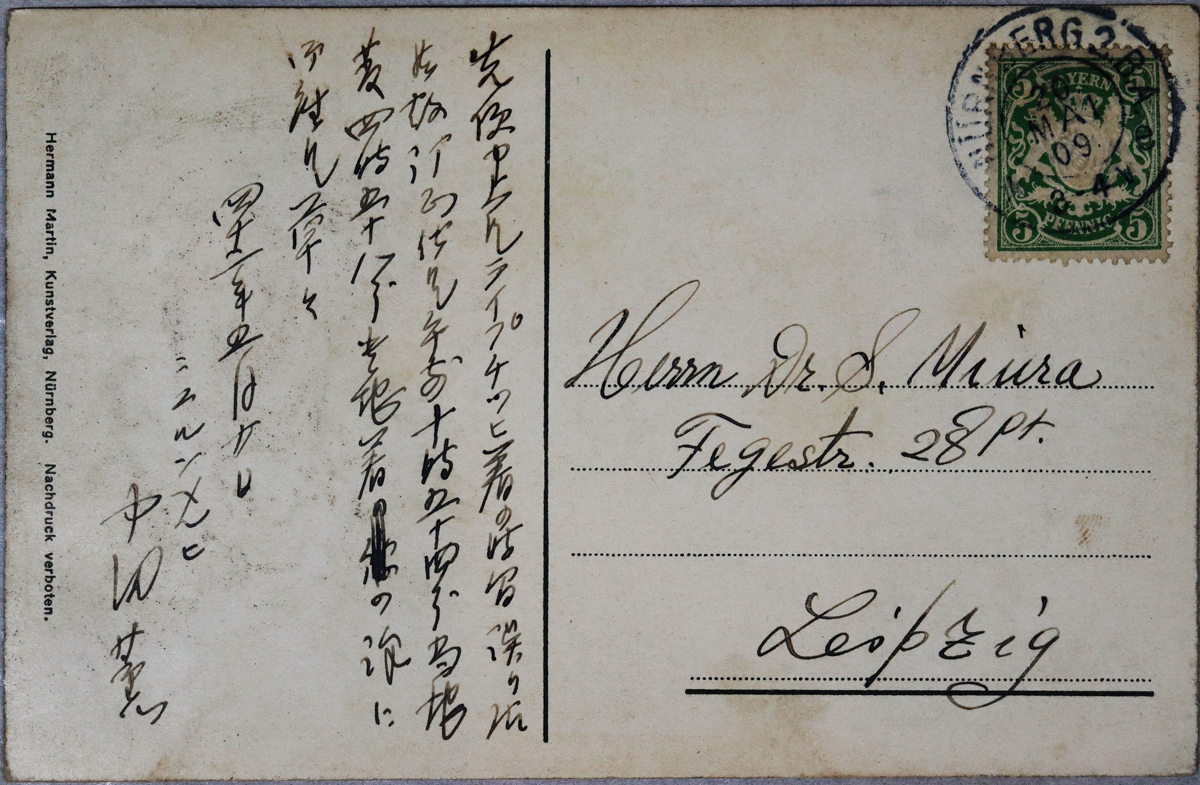 NÜRNBERG 2. B.A.
20
MAI
09.
8-4 N
BAYERN
5 5
5 PFENNIG 5
Herrn Dr. S. Miura
Fegestr. 28 pt.
Leipzig
先便申上候ライプチッヒ着の時間誤り
午前十時五十四分当地
発四時五十八分貴地着の に
御座候草々
四十二年五月廿日
ニュルンベルヒ
中田薫
Hermann Martin, Kunstverlag, Nürnberg. Nachdruck verboten.